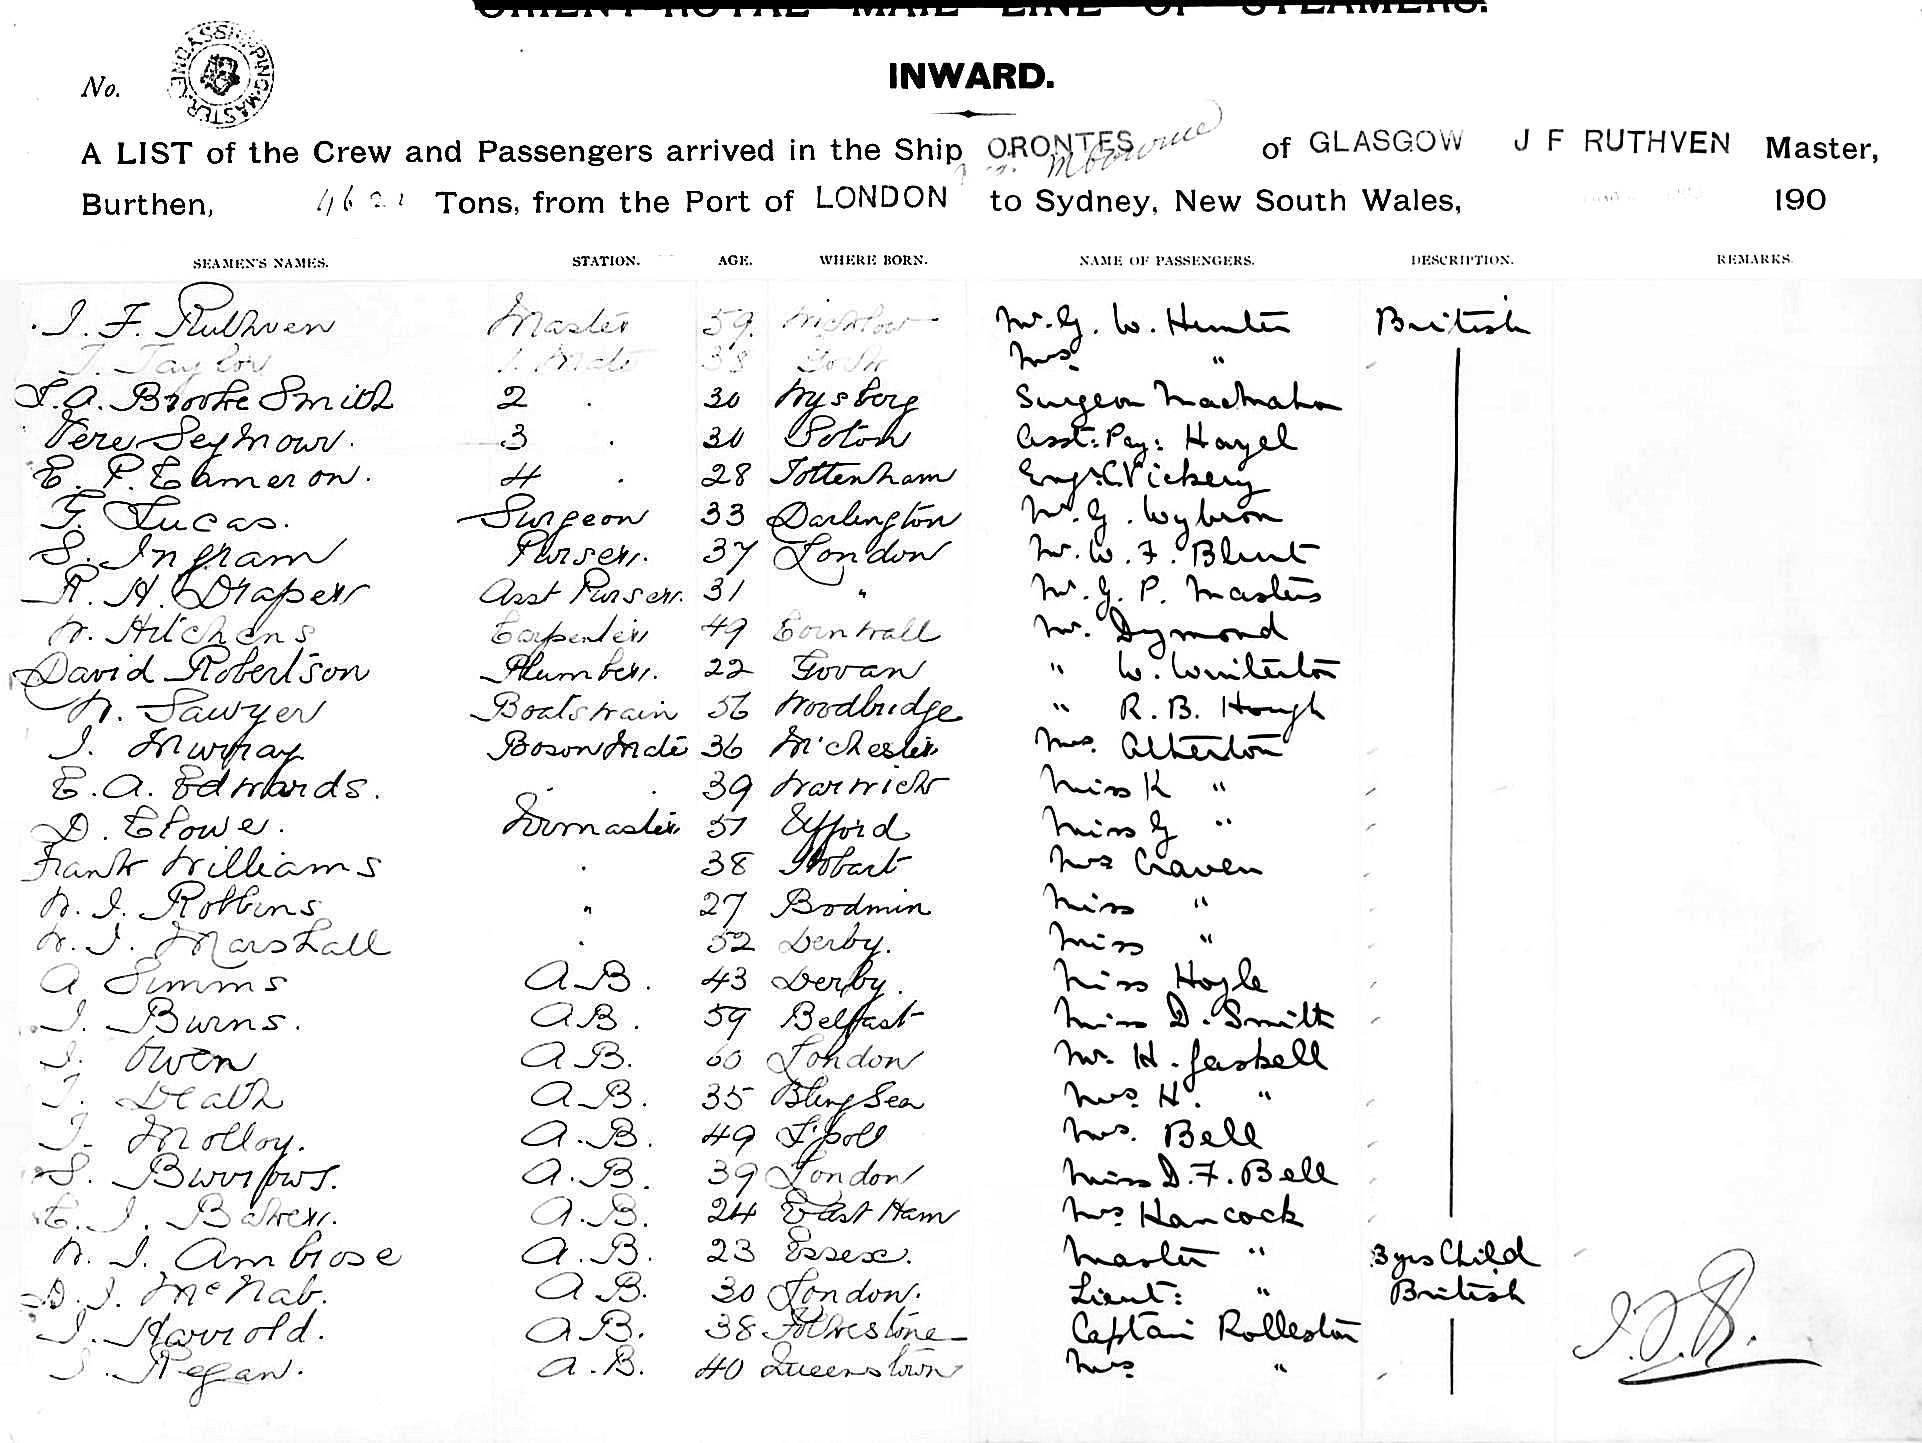 ORIENT-ROYAL MAIL LINE OF STEAMERS.
No.
INWARD.
A LIST of the Crew and Passengers arrived in the Ship ORONTES of GLASGOW J F RUTHVEN Master,
Burthen, 4621 Tons, from the Port of LONDON to Sydney, New South Wales, 190
SEAMEN'S NAMES. STATION. AGE. WHERE BORN. NAME OF PASSENGERS. DESCRIPTION. REMARKS.
J. F. Ruthven Master 59. Wicklow Mr. G. W. Hunter British
T. Taylor 1. Mate 38 Mrs. "
J. A. Brooke Smith 2 . 30 Surgeon MacMahon
Vere Seymour. 3 . 30 Soton Asst: Pay: Hayel
E. P. Cameron. 4 . 28 Tottenham Engr. C. Vickery
F. Lucas. Surgeon 33 Darlington Mr. G. Wybron
S. Ingram Purser. 37 London Mr. W. F. Blunt
R. H. Draper Asst Purser. 31 " Mr. G. P. Masters
W. Hitchens Carpenter 49 Cornwall Mr. Dymond
David Robertson Plumber. 22 Govan " W. Winterton
W. Sawyer Boatswain 56 Woodbridge " R. B. Hough
J. Murray Boson Mate 36 M'Chester Mrs. Atherton
E. A. Edwards. . . 39 Warwick Miss K "
D. Clowe. 51 Efford Miss G "
Frank Williams . 38 Hobart Mrs Craven
W. J. Robbins " 27 Bodmin Miss "
W. J. Marshall . 52 Derby. Miss "
A Simms A.B. 43 Derby. Miss Hoyle
J. Burns. A.B. 59 Belfast Miss D. Smith
J. Owen A.B. 60 London Mr. H. Gaskell
T. Death A.B. 35 Mrs H. "
J. Molloy. A.B. 49 L'pool Mrs. Bell
S. Burrows. A.B. 39 London Miss D. F. Bell
C. J. Baker. A.B. 24 East Ham Mrs Hancock
W. J. Ambrose A.B. 23 Essex. Master " 3 yrs Child
D. J. McNab. A.B. 30 London. Lieut: " British
J. Harrold. A.B. 38 Folkestone Captain Rolleston
J. Regan. A.B. 40 Queenstown Mrs "
J.F.R.